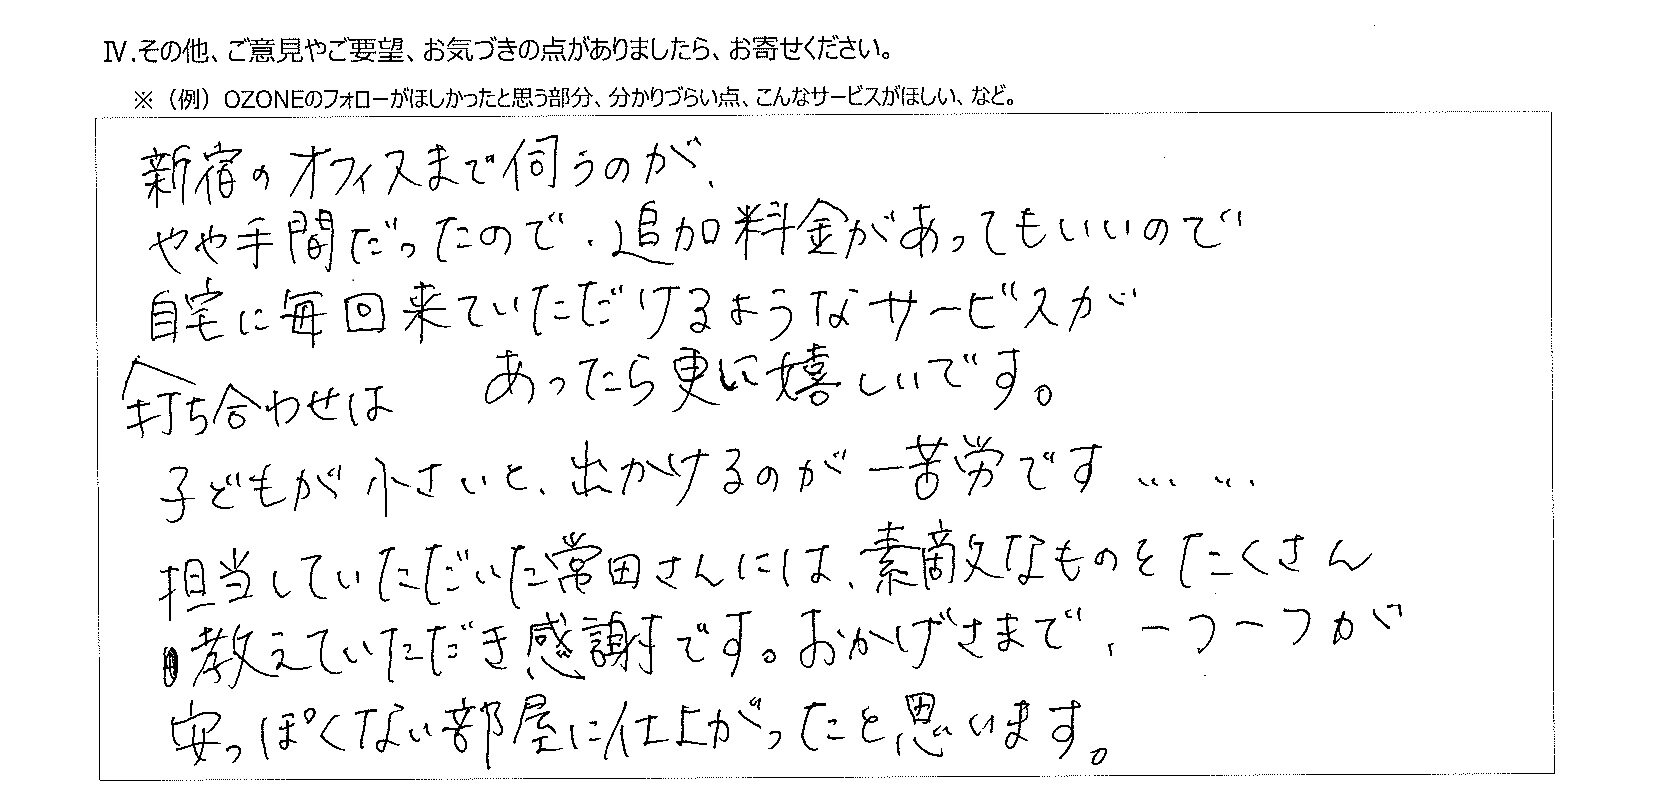 Ⅳ.その他、ご意見やご要望、お気づきの点がありましたら、お寄せください。
※（例）OZONEのフォローがほしかったと思う部分、分かりづらい点、こんなサービスがほしい、など。
新宿のオフィスまで伺うのが、
やや手間だったので、追加料金があってもいいので
自宅に毎回来ていただけるようなサービスが
あったら更に嬉しいです。
打ち合わせは
子どもが小さいと、出かけるのが一苦労です……
担当していただいた常田さんには、素敵なものをたくさん
教えていただき感謝です。おかげさまで、一つ一つが
安っぽくない部屋に仕上がったと思います。